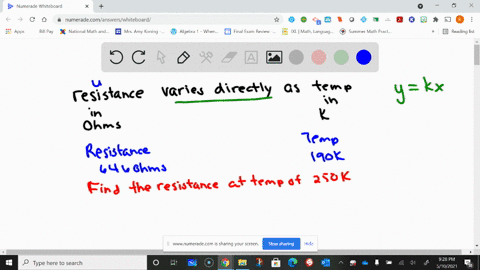 Numerade Whiteboard
numerade.com/answers/whiteboard/
Apps
Bill Pay
National Math and...
Mrs. Amy Koning -...
Algebra 1 - Wheneve...
Final Exam Review -...
(XL) Math, Languag...
Summer Math Proj...
Reading list
u
resistance varies directly as temp
y = kx
in
Ohms
in
K
Resistance
646 ohms
Temp
190K
Find the resistance at temp of 250K
www.numerade.com is sharing your screen.
Stop sharing
Hide
Type here to search
9:28 PM
5/10/2021